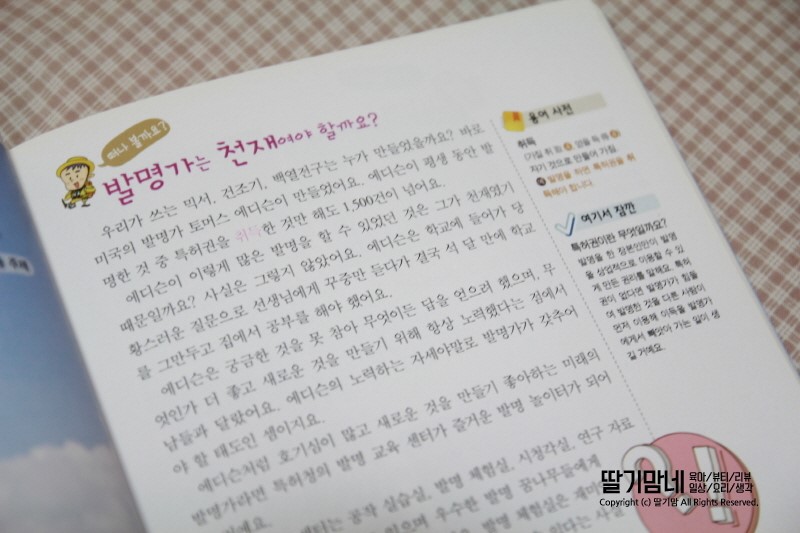 떠나 볼까요?
발명가는 천재여야 할까요?
우리가 쓰는 믹서, 건조기, 백열전구는 누가 만들었을까요? 바로
미국의 발명가 토머스 에디슨이 만들었어요. 에디슨이 평생 동안 발
명한 것 중 특허권을 취득한 것만 해도 1,500건이 넘어요.
에디슨이 이렇게 많은 발명을 할 수 있었던 것은 그가 천재였기
때문일까요? 사실은 그렇지 않았어요. 에디슨은 학교에 들어가 당
황스러운 질문으로 선생님에게 꾸중만 듣다가 결국 석 달 만에 학교
를 그만두고 집에서 공부를 해야 했어요.
에디슨은 궁금한 것을 못 참아 무엇이든 답을 얻으려 했으며, 무
엇인가 더 좋고 새로운 것을 만들기 위해 항상 노력했다는 점에서
남들과 달랐어요. 에디슨의 노력하는 자세야말로 발명가가 갖추어
야 할 태도인 셈이지요.
에디슨처럼 호기심이 많고 새로운 것을 만들기 좋아하는 미래의
발명가라면 특허청의 발명 교육 센터가 즐거운 발명 놀이터가 되어
공작 실습실, 발명 체험실, 시청각실, 연구 자료
우수한 발명 꿈나무들에게
발명 체험실은
용어 사전
취득
자기 것으로 만들어 가짐.
발명을 하면 특허권을 취
득해야 합니다.
여기서 잠깐
특허권이란 무엇일까요?
발명을 한 장본인만이 발명
을 상업적으로 이용할 수 있
게 만든 권리를 말해요. 특허
권이 없다면 발명가가 힘들
여 발명한 것을 다른 사람이
먼저 이용해 이득을 발명가
에게서 빼앗아 가는 일이 생
길 거예요.
딸기맘네 육아/뷰티/리뷰
일상/요리/생각
Copyright (c) 딸기맘 All Rights Reserved.